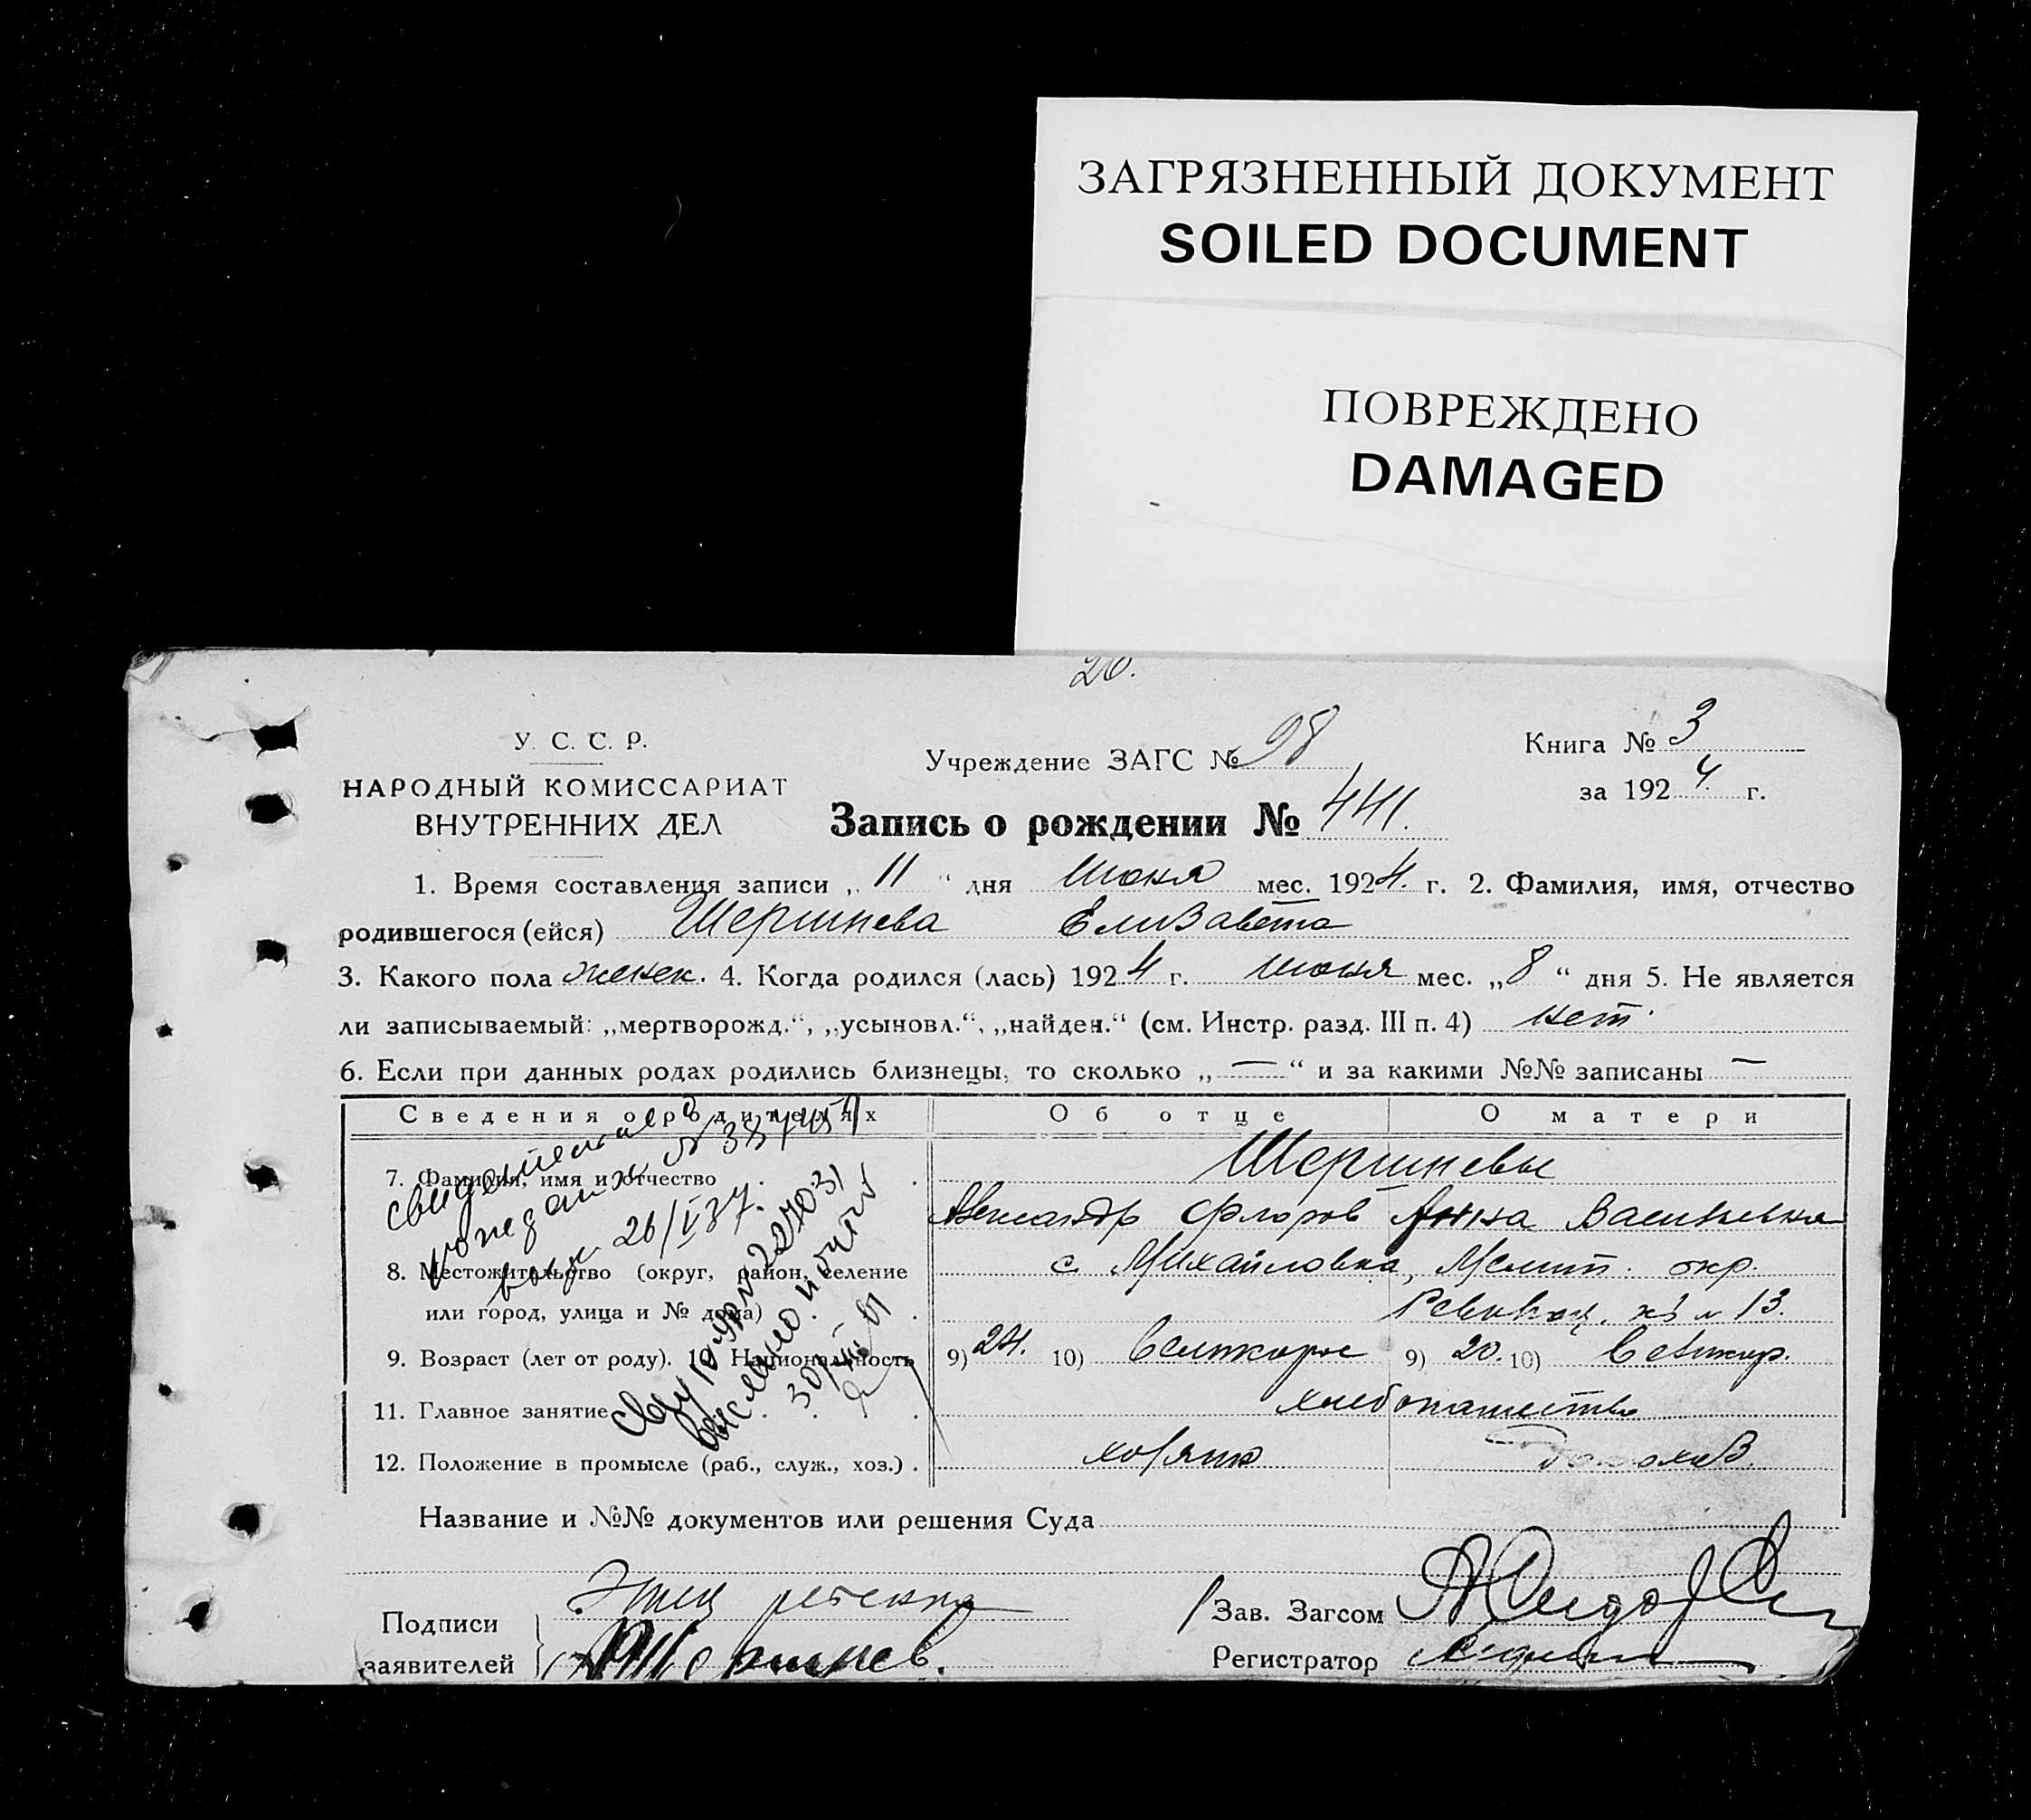 ЗАГРЯЗНЕННЫЙ ДОКУМЕНТ
SOILED DOCUMENT
ПОВРЕЖДЕНО
DAMAGED
20.
У. С. С. Р.
НАРОДНЫЙ КОМИССАРИАТ
ВНУТРЕННИХ ДЕЛ
Учреждение ЗАГС № 98
Книга № 3
за 1924 г.
Запись о рождении № 441.
1. Время составления записи „11“ дня июня мес. 1924. г. 2. Фамилия, имя, отчество
родившегося (ейся) Шершнева Елизавета
3. Какого пола женск. 4. Когда родился (лась) 1924 г. июня мес. „8“ дня 5. Не является
ли записываемый: „мертворожд.“, „усыновл.“, „найден.“ (см. Инстр. разд. III п. 4) нет.
6. Если при данных родах родились близнецы, то сколько „—“ и за какими №№ записаны —
Сведения о родителях Об отце О матери
7. Фамилия, имя и отчество Шершневы
Александр Флоров Анна Васильевна
8. Местожительство (округ, район, селение с. Михайловка, Мелит. окр.
или город, улица и № дома) № 13.
9. Возраст (лет от роду). 10. Национальность 9) 24. 10) Великорос 9) 20. 10) Великор.
11. Главное занятие хлебопашество
12. Положение в промысле (раб., служ., хоз.)
26/V 37.
Название и №№ документов или решения Суда
Подписи
заявителей
Отец ребенка
Шершнев.
Зав. Загсом
Регистратор